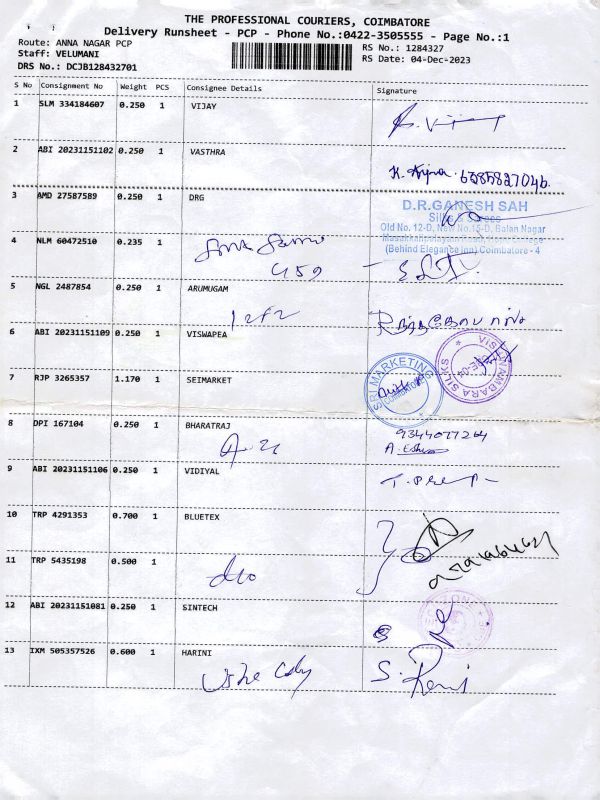 THE PROFESSIONAL COURIERS, COIMBATORE
Delivery Runsheet - PCP - Phone No.:0422-3505555 - Page No.:1
Route: ANNA NAGAR PCP
RS No.: 1284327
Staff: VELUMANI
RS Date: 04-Dec-2023
DRS No.: DCJB128432701
S No Consignment No Weight PCS Consignee Details Signature
1 SLM 334184607 0.250 1 VIJAY
2 ABI 20231151102 0.250 1 VASTHRA
6385827046.
3 AMD 27587589 0.250 1 DRG
D.R.GANESH SAH
Old No. 12-D, New No.15-D, Balan Nagar
(Behind Elegance Inn) Coimbatore - 4
4 NLM 60472510 0.235 1
459
5 NGL 2487854 0.250 1 ARUMUGAM
6 ABI 20231151109 0.250 1 VISWAPEA
7 RJP 3265357 1.170 1 SEIMARKET
SRI MARKETING
COIMBATORE
8 DPI 167104 0.250 1 BHARATRAJ
9344077264
9 ABI 20231151106 0.250 1 VIDIYAL
10 TRP 4291353 0.700 1 BLUETEX
11 TRP 5435198 0.500 1
12 ABI 20231151081 0.250 1 SINTECH
13 IXM 505357526 0.600 1 HARINI